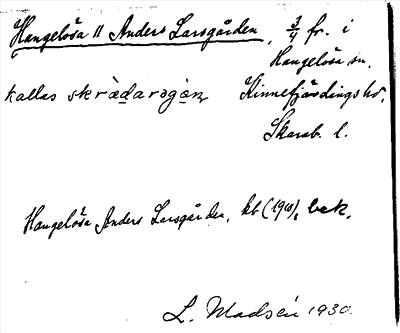 Hangelösa 11 Anders Larsgården, 3/4 fr. i
Hangelösa sn.
kallas skrὰdarɔgὰn̥ Kinnefjärdings hd.
Skarab. l.
Hangelösa Anders Larsgården, kb (1910), bek.
L. Madsén 1930.